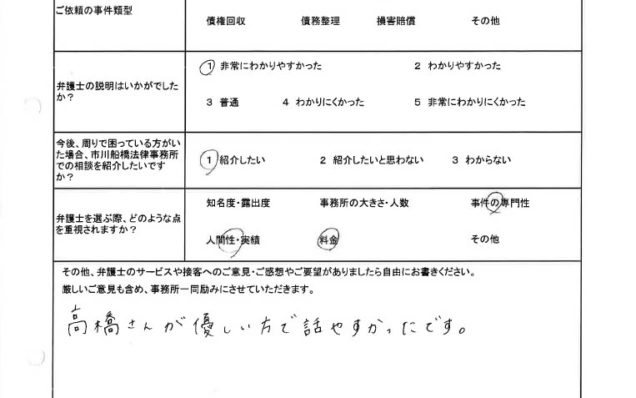 ご依頼の事件類型
債権回収 債務整理 損害賠償 その他
弁護士の説明はいかがでした
か?
1 非常にわかりやすかった 2 わかりやすかった
3 普通 4 わかりにくかった 5 非常にわかりにくかった
今後、周りで困っている方がい
た場合、市川船橋法律事務所
での相談を紹介したいです
か?
1 紹介したい 2 紹介したいと思わない 3 わからない
弁護士を選ぶ際、どのような点
を重視されますか?
知名度・露出度 事務所の大きさ・人数 事件の専門性
人間性・実績 料金 その他
その他、弁護士のサービスや接客へのご意見・ご感想やご要望がありましたら自由にお書きください。
厳しいご意見も含め、事務所一同励みにさせていただきます。
高橋さんが優しい方で話やすかったです。